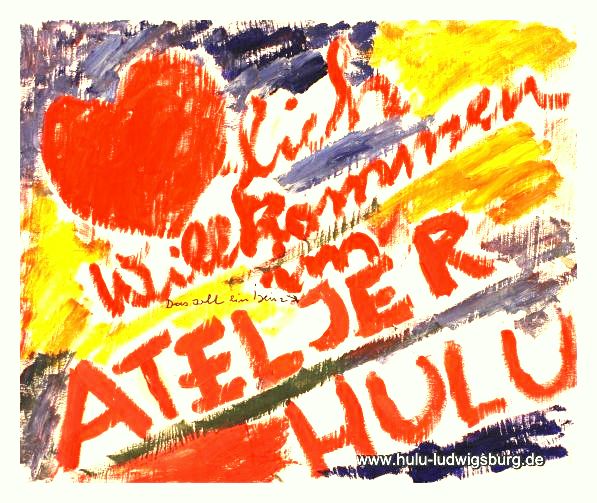 lich
Willkommen
im
Das soll ein
ATELJER
HULU
www.hulu-ludwigsburg.de